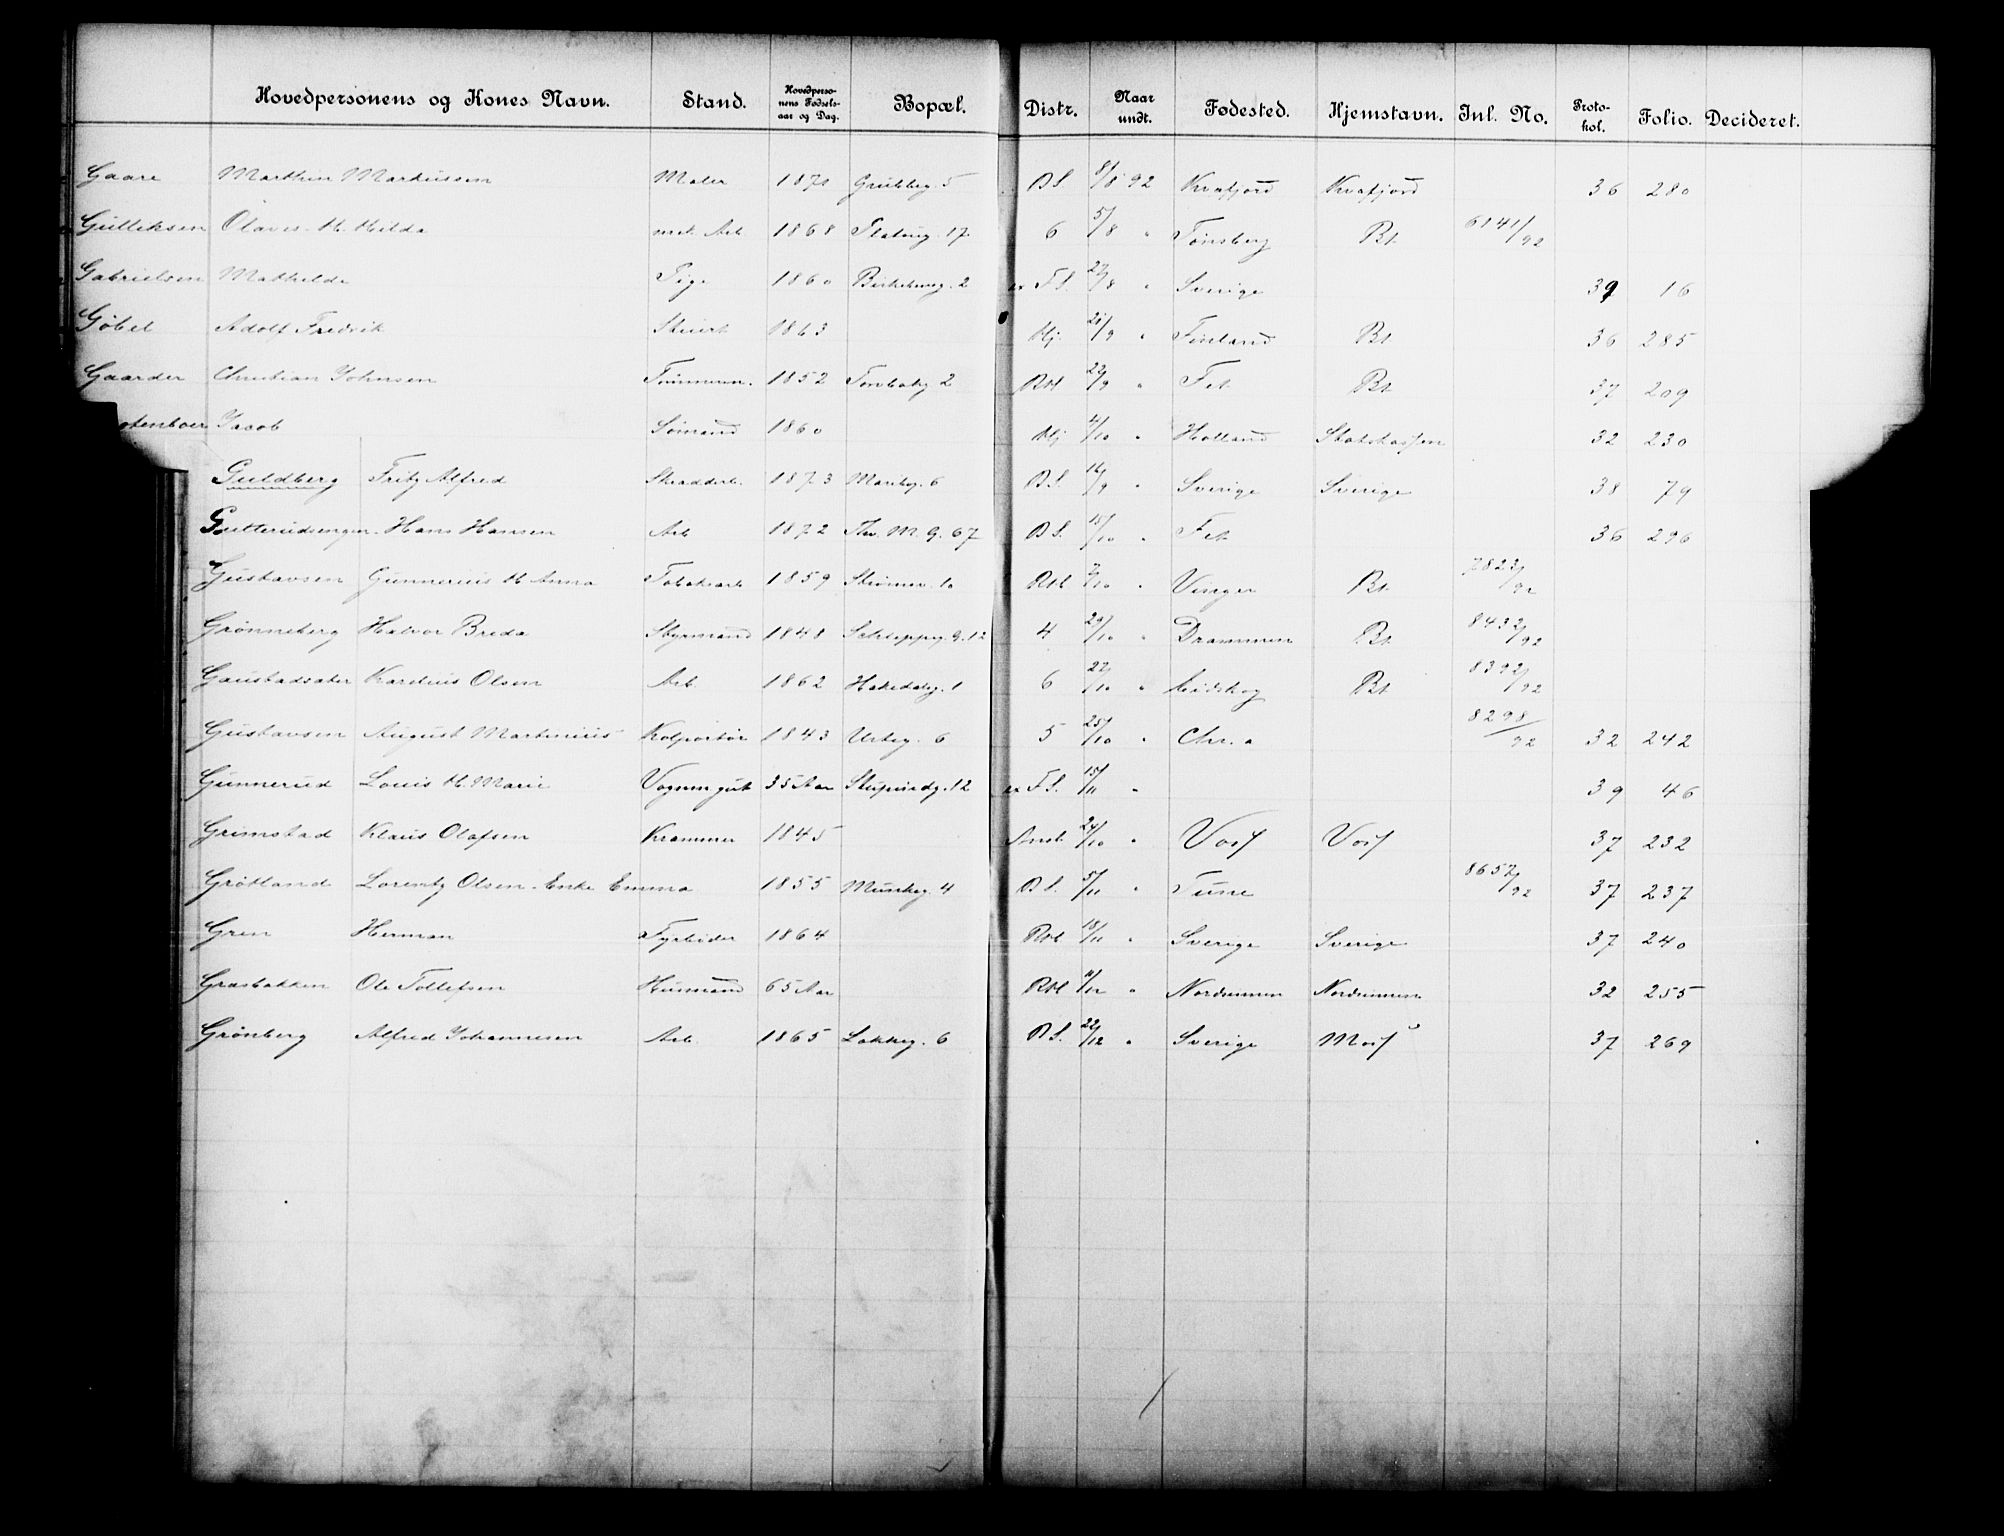 Hovedpersonens og Kones Navn. Stand. Hovedpersonens Fødselsaar og Dag. Bopæl. Distr. Naar undt. Fødested. Hjemstavn. Inl. No. Protokol. Folio. Decideret.
Gaare Marthin Markussen Maler 1871 Grübbeg. 5 BS. 8/8 92 Kvæfjord Kvæfjord 36 280
Gulliksen Olaves. M. Hilda Arb 1868 Flateng. 17 6 5/8 " Tønsberg Bt. 6141/92
Gabrielsen Mathilde Pige 1860 Birkelung. 2 F.S. 22/8 " Sverige 39 16
Gøbel Adolf Fredrik 1863 Hj. 21/9 " Finland Bt 36 285
Gaarder Christian Johnsen Tømmerm. 1852 Torvbakg 2 Rtl 22/9 " Fet Bt. 37 209
otenboer Jacob Sømand 1860 Hj 4/10 " Holland Statskassen 32 230
Guldberg Fritz Alfred Skrædders. 1873 Maribg. 6 BS. 16/9 " Sverige Sverige 38 79
Gutterudsenger. Hans Hansen Arb 1872 Thv. M. g. 67 BS. 15/10 " Fet 36 296
Gustavsen Gunnerius M Anna Tobaksarb 1859 Strømsv. 10 Rtl 7/10 " Vinger Bt. 7823/92
Grønneberg Halvor Breda Styrmand 1848 Schleppeg. 9.12 4 29/10 " Drammen Bt. 8432/92
Gaustadsæter Kardius Olsen Arb. 1862 Hakedalg. 1 6 22/10 " Eidskog Bt 8392/92
Gustavsen August Martinius Kolportør 1843 Urteg. 6 5 25/10 " Chr.a 8298/92 32 242
Gunnerud Louis M. Marie Vognmgut 35 Aar Stupindg. 12 F.S. 15/11 " 39 46
Grimstad Klaus Olafsen Kræmmer 1845 Anst. 24/10 " Voss Voss 37 232
Grøtland Lorentz Olsen. Enke Emma 1855 Munkeg. 4 BS. 5/11 " Tune 8652/92 37 237
Gren Herman Fyrbøder 1864 Rtl 18/11 " Sverige Sverige 37 240
Græsbakken Ole Tollefsen Husmand 65 Aar Rtl 11/12 " Nordrummen Nordrummen 32 255
Grønberg Alfred Johannesen Arb. 1865 Løkkeg. 6 BS. 22/12 " Sverige Moss 37 269